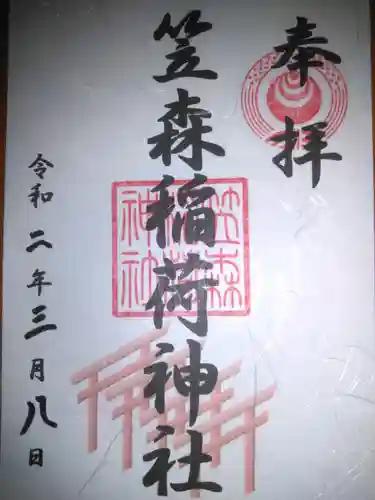 奉拝
笠森稲荷神社
笠森稲荷神社
令和二年三月八日